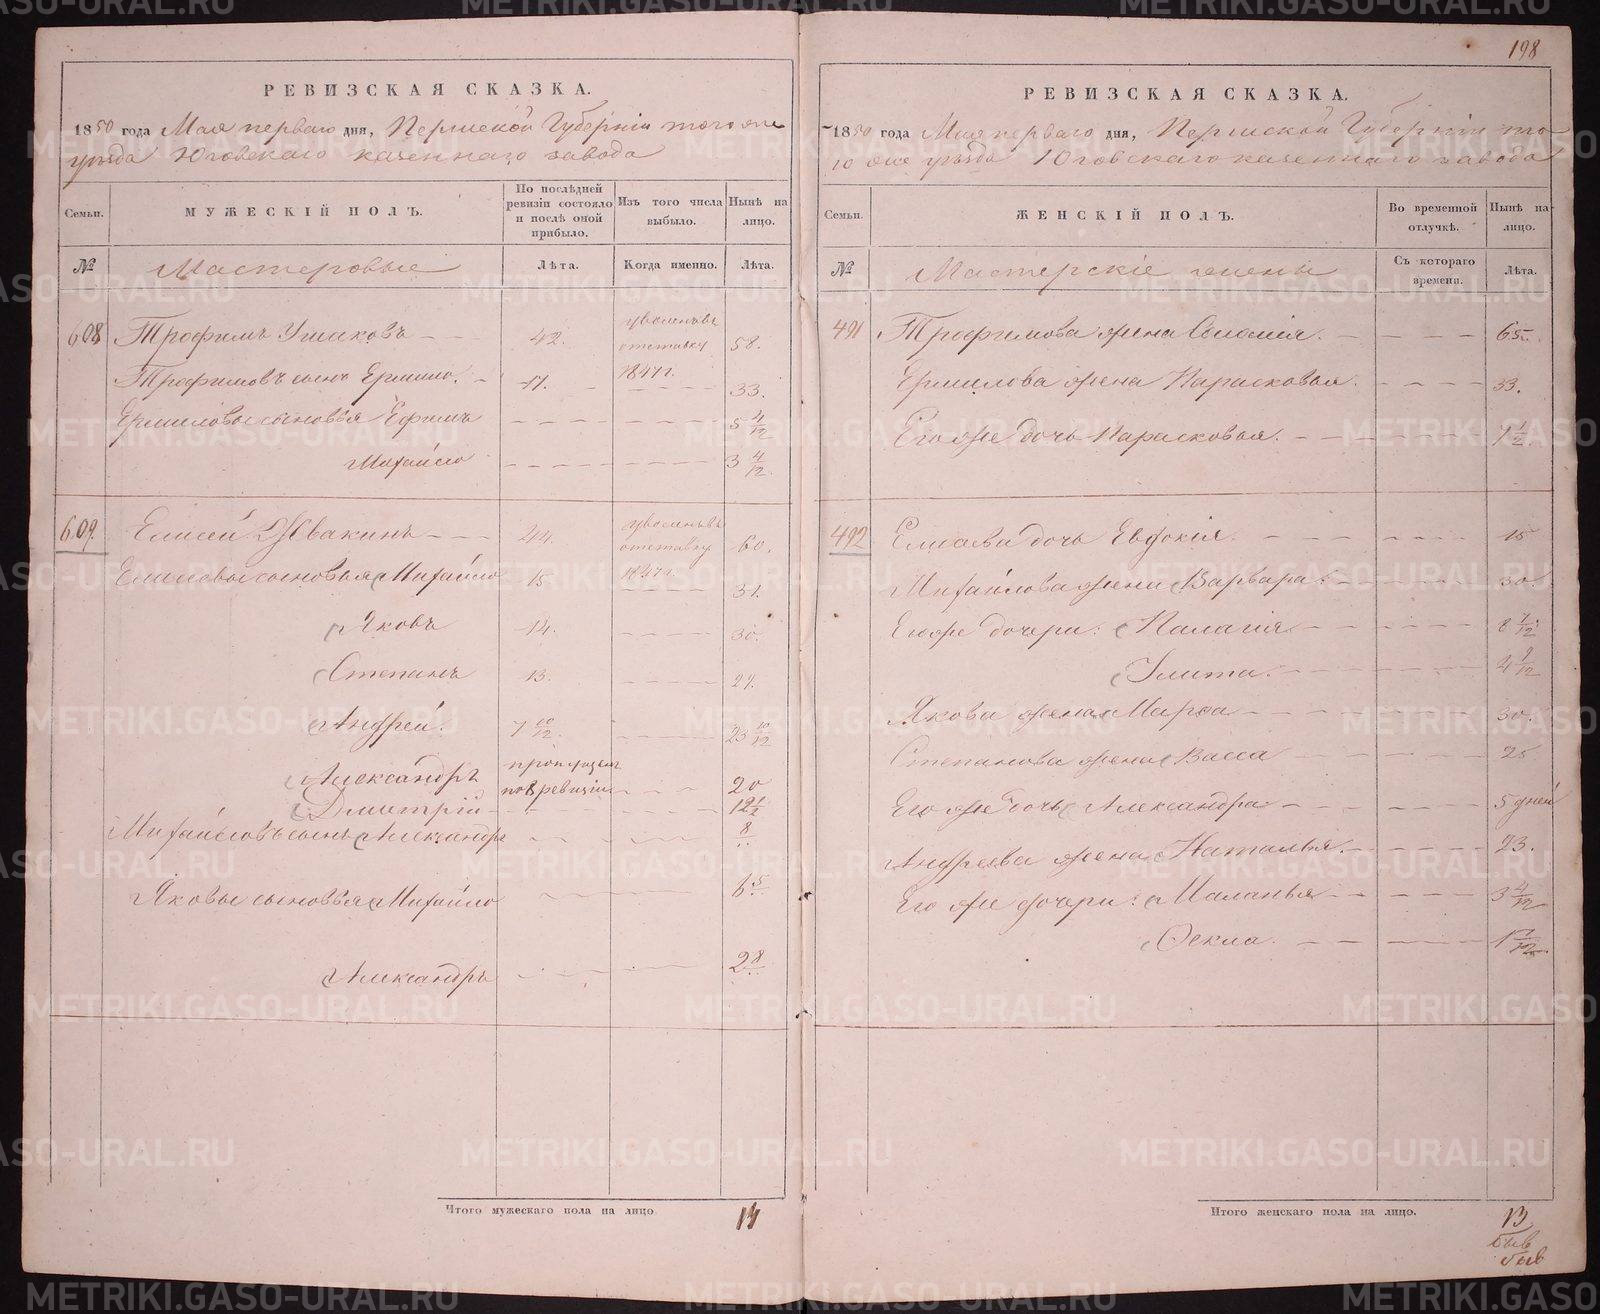 198
РЕВИЗСКАЯ СКАЗКА.
1850 года Мая перваго дня, Пермской Губерніи тогоже
уѣзда Юговскаго казеннаго завода
Семьи. МУЖЕСКІЙ ПОЛЪ. По послѣдней ревизіи состояло и послѣ оной прибыло. Изъ того числа выбыло. Нынѣ на лицо.
№ Мастеровые Лѣта. Когда именно. Лѣта.
608 Трофимъ Ушаковъ 42. уволенъ въ отставку 1847 г. 58.
Трофимовъ сынъ Ермило. 17. 33.
Ермиловы сыновья Ефимъ 5 4/12
Михайло 3 4/12
609. Елисей 44. уволенъ въ отставку 1847 г. 60.
Елисеевы сыновья Михайло 15. 31.
Яковъ 14. 30.
Степанъ 13. 29.
Андрей. 7 10/12 23 10/12
Александръ пропущенъ по 8 ревизіи 20
Дмитрій 12 1/2
Михайловъ сынъ Александръ 8
Яковы сыновья Михайло 6
Александръ 2
Итого мужескаго пола на лицо 14
РЕВИЗСКАЯ СКАЗКА.
1850 года Мая перваго дня, Пермской Губерніи то
го же уѣзда Юговскаго казеннаго завода
Семьи. ЖЕНСКІЙ ПОЛЪ. Во временной отлучкѣ. Нынѣ на лицо.
№ Мастерскіе жены Съ котораго времени. Лѣта.
491 Трофимова жена Соломія. 65.
Ермилова жена Парасковья. 33.
Его же дочь Парасковья. 1 1/2
492 Елисѣева дочь Евдокія. 15
Михайлова жена Варвара. 30.
Его же дочери: Палагія 8 7/12
Улита. 4 9/12
Якова жена Марѳа 30.
Степанова жена Васса 25
Его же дочь Александра 5 дней
Андреева жена Наталья. 23.
Его же дочери: Маланья 3 4/12
Ѳекла.
Итого женскаго пола на лицо. 13
METRIKI.GASO-URAL.RU